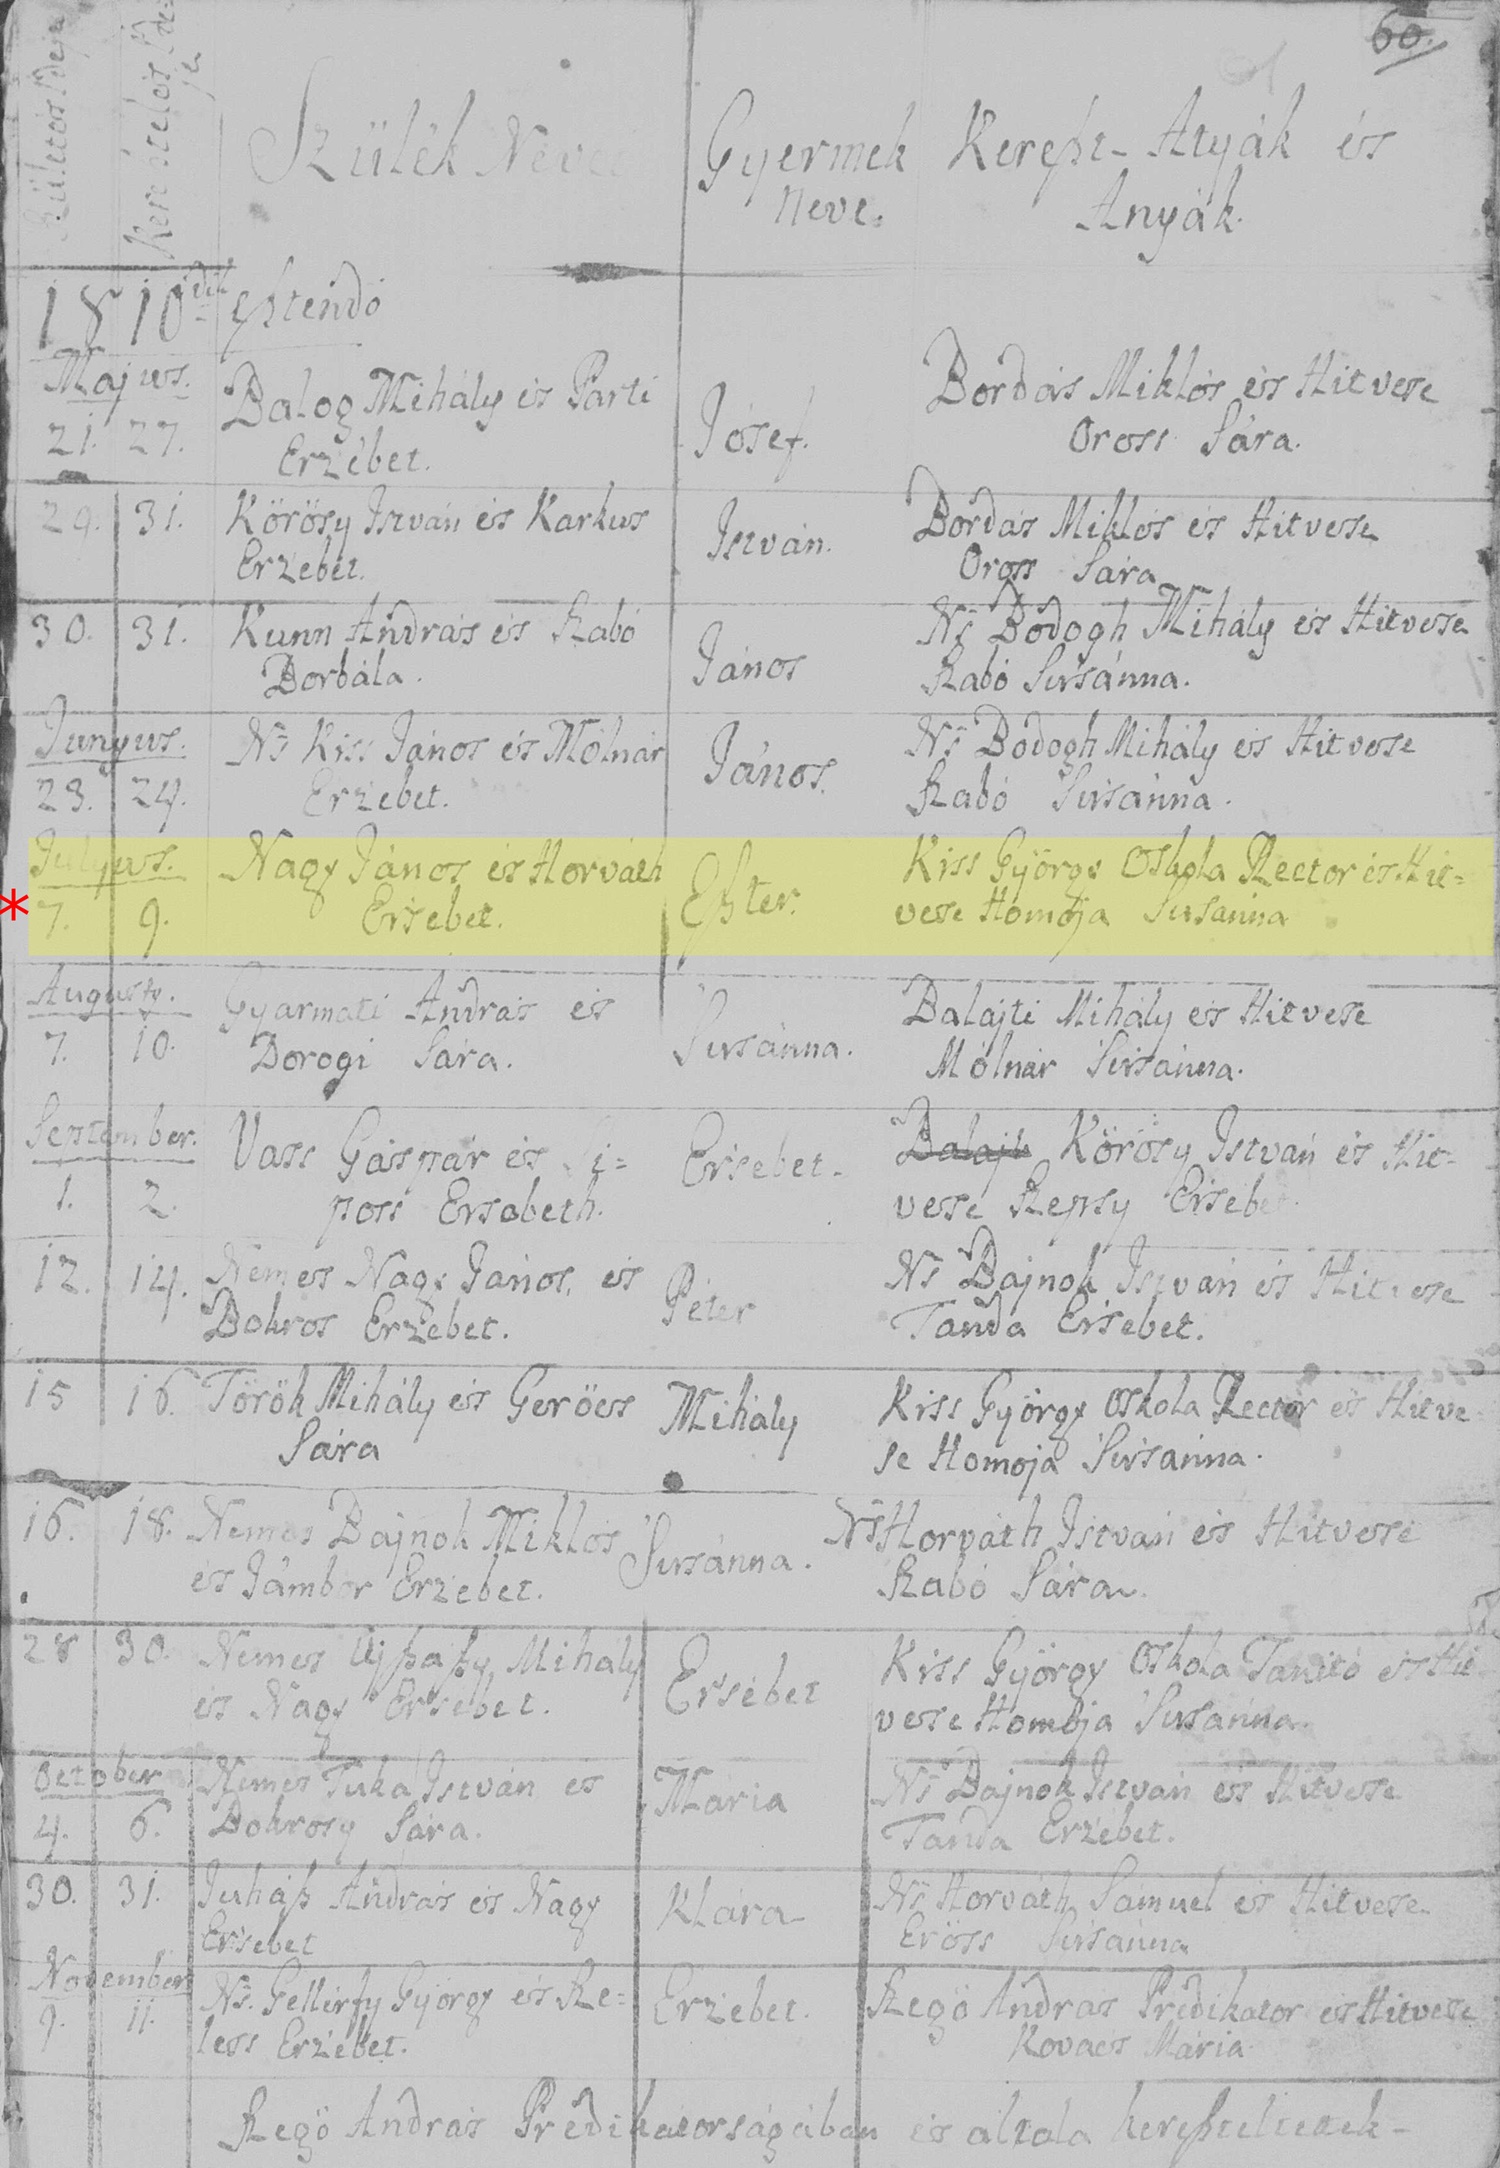 60.
Születés Ideje
Keresztelés Ideje
Szülék Neve
Gyermek Neve.
Kereszt-Atyák és
Anyák.
1810dik esztendő
Majus.
21. 27. Balog Mihály és Parti
Erzébet.
Jósef.
Bordás Miklós és Hitvese
Oross Sára.
29. 31. Körösy István és Karkus
Erzébet.
István.
Bordás Miklós és Hitvese
Oross Sára
30. 31. Kunn András és Szabó
Borbála.
János
Ns Bódogh Mihály és Hitvese
Szabó Susánna.
Junyus.
23. 24. Ns Kiss János és Mólnár
Erzébet.
János.
Ns Bódogh Mihály és Hitvese
Szabó Susánna.
Julyus.
* 7. 9. Nagy János és Horváth
Ersébet.
Eszter.
Kiss György Oskola Rector és Hit=
vese Homoja Susánna
August.
7. 10. Gyarmati András és
Dorogi Sára.
Susánna.
Balajti Mihály és Hitvese
Mólnár Susánna.
September.
1. 2. Vass Gáspár és Si=
poss Ersabeth.
Ersébet.
Balajt Körösy István és Hit=
vese Repsy Ersébet.
12. 14. Nemes Nagy János és
Bokros Erzébet.
Péter
Ns Bajnok István és Hitvese
Tanda Ersébet.
15 16. Török Mihály és Geröcs
Sára
Mihály
Kiss György Oskola Rector és Hitve=
se Homoja Susánna.
16. 18. Nemes Bajnok Miklós
és Jámbor Erzébet.
Susánna.
Ns Horváth István és Hitvese
Szabó Sára.
28 30. Nemes Ujszaszy Mihály
és Nagy Ersébet.
Ersébet
Kiss György Oskola Tanító és Hit=
vese Homoja Susánna.
October
4. 6. Nemes Tuka István és
Bokrosy Sára.
Mária
Ns Bajnok István és Hitvese
Tanda Erzébet.
30. 31. Juhász András és Nagy
Ersébet
Klára
Ns Horváth Sámuel és Hitvese
Erőss Susánna
November
9. 11. Ns. Gellérfy György és Sze=
less Erzébet.
Erzébet.
Szegő András Prédikátor és Hitvese
Kovács Mária
Szegő András Prédikátorságában és általa kereszteltettek-